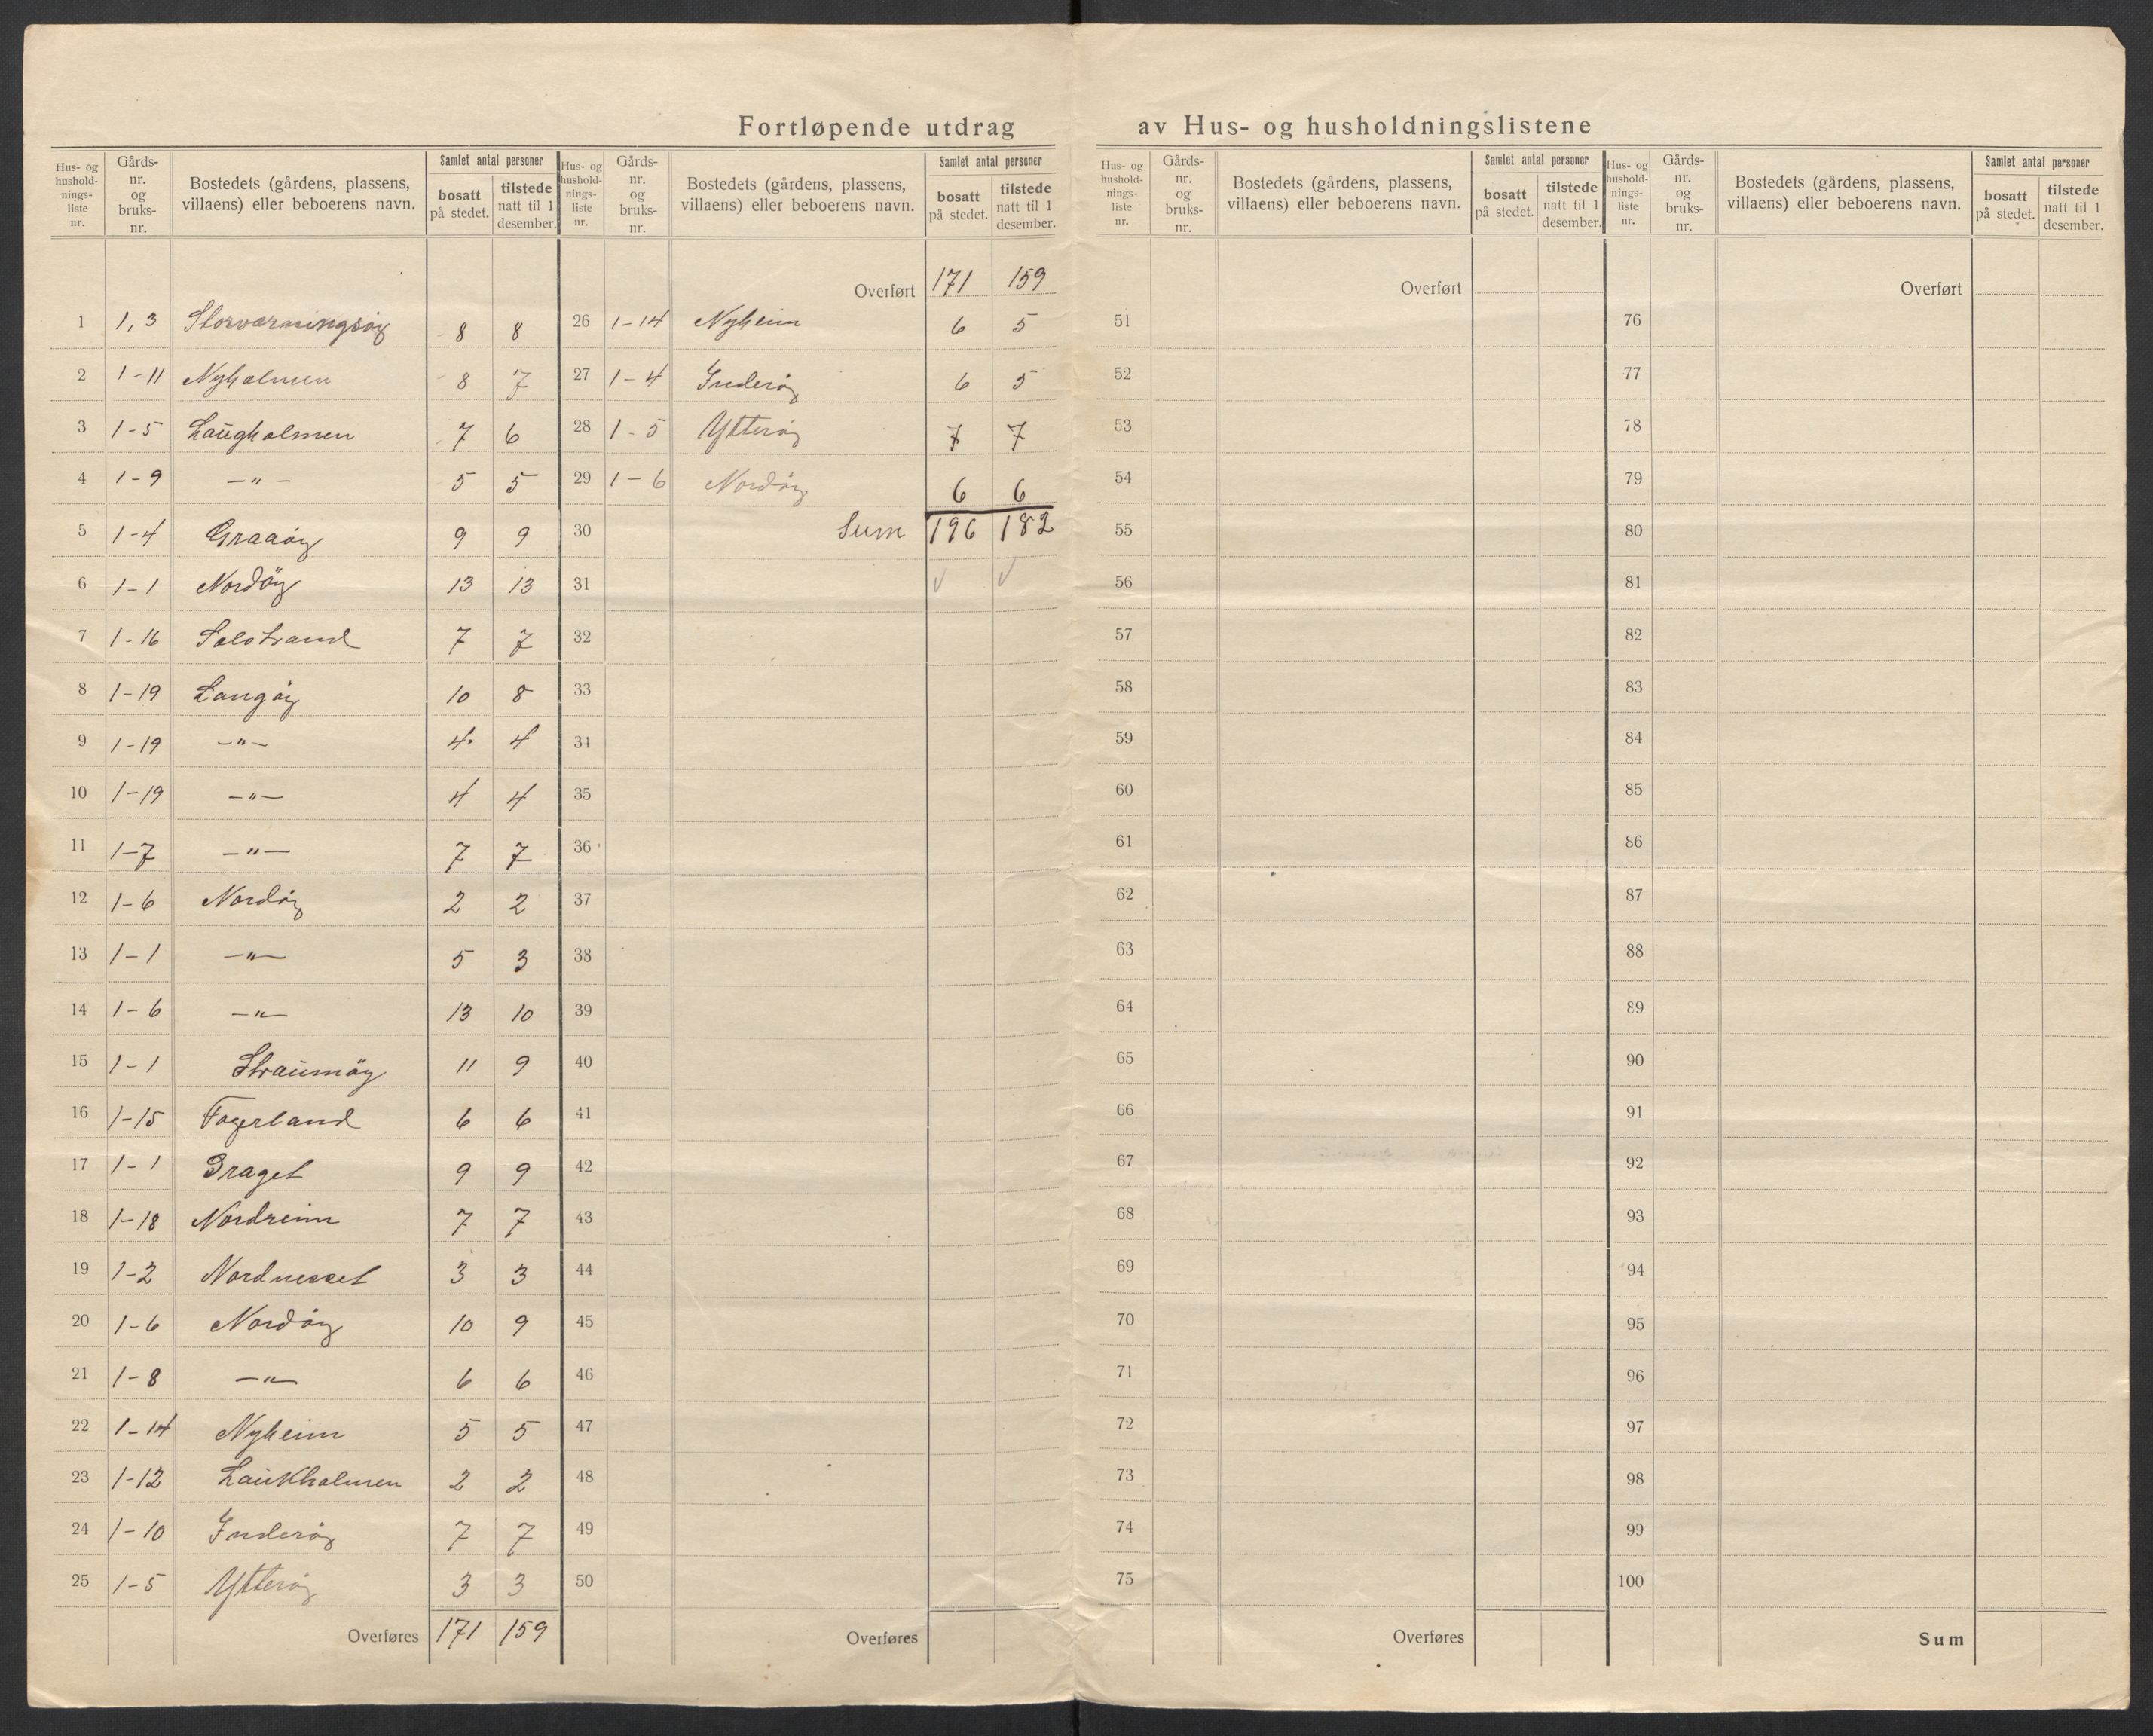 Fortløpende utdrag av Hus- og husholdningslistene
Hus- og hushold-nings-liste nr. Gårds-nr. og bruks-nr. Bostedets (gårdens, plassens, villaens) eller beboerens navn. Samlet antal personer bosatt på stedet. tilstede natt til 1 desember.
1 1, 3 Storværningsöy 8 8
2 1-11 Nyholmen 8 7
3 1-5 Laŭgholmen 7 6
4 1-9 -„- 5 5
5 1-4 Graaöy 9 9
6 1-1 Nordöy 13 13
7 1-16 Solstrand 7 7
8 1-19 Langöy 10 8
9 1-19 -„- 4 4
10 1-19 -„- 4 4
11 1-7 -„- 7 7
12 1-6 Nordöy 2 2
13 1-1 -„- 5 3
14 1-6 -„- 13 10
15 1-1 Straŭmöy 11 9
16 1-15 Fagerland 6 6
17 1-1 Draget 9 9
18 1-18 Nordreim 7 7
19 1-2 Nordnesset 3 3
20 1-6 Nordöy 10 9
21 1-8 -„- 6 6
22 1-14 Nyheim 5 5
23 1-12 Laŭkholmen 2 2
24 1-10 Inderöy 7 7
25 1-5 Ytteröy 3 3
Overføres 171 159
Hus- og hushold-nings-liste nr. Gårds-nr. og bruks-nr. Bostedets (gårdens, plassens, villaens) eller beboerens navn. Samlet antal personer bosatt på stedet. tilstede natt til 1 desember.
Overført 171 159
26 1-14 Nyheim 6 5
27 1-4 Inderöy 6 5
28 1-5 Ytteröy 7 7
29 1-6 Nordöy 6 6
30 Sum 196 182
31 √ √
32
33
34
35
36
37
38
39
40
41
42
43
44
45
46
47
48
49
50
Overføres
Hus- og hushold-nings-liste nr. Gårds-nr. og bruks-nr. Bostedets (gårdens, plassens, villaens) eller beboerens navn. Samlet antal personer bosatt på stedet. tilstede natt til 1 desember.
Overført
51
52
53
54
55
56
57
58
59
60
61
62
63
64
65
66
67
68
69
70
71
72
73
74
75
Overføres
Hus- og hushold-nings-liste nr. Gårds-nr. og bruks-nr. Bostedets (gårdens, plassens, villaens) eller beboerens navn. Samlet antal personer bosatt på stedet. tilstede natt til 1 desember.
Overført
76
77
78
79
80
81
82
83
84
85
86
87
88
89
90
91
92
93
94
95
96
97
98
99
100
Sum